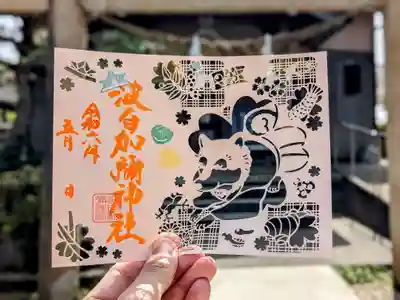 波自加彌神社
令和六年
五月 日